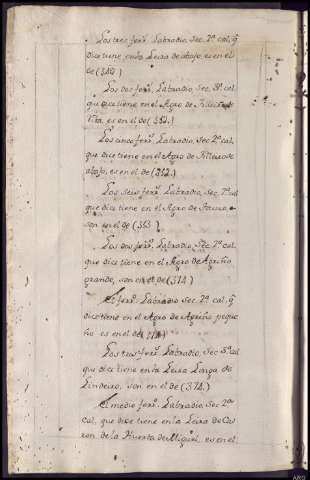 Los tres ferr.s Labradio, Sec. 2.a cal, q.e
dice tiene en la Leira de abajo, es en el
de (312.)
Los dos ferr.s Labradio, Sec. 3.a cal.
que dice tiene en el Agro de
es en el de (312.)
Los cinco ferr.s Labradio, Sec. 2.a cal.
que dice tiene en el Agro de
abajo, es en el de (312.)
Los seis ferr.s Labradio, Sec. 2.a cal
que dice tiene en el Agro de
son en el de (313)
Los dos ferr.s Labradio, Sec. 2.a cal.
que dice tiene en el Agro de Agriño
grande, son en el de (314)
El ferr.o Labradio Sec. 2.a cal. q.e
dice tiene en el Agro de Agriño peque
ño es en el de (314)
Los tres ferr.s Labradio, Sec 3.a cal
que dice tiene en la Leira Longa de
Lindeiro, son en el de (314.)
El medio ferr.o Labradio, Sec 2.a
cal, que dice tiene en la Leira de Cas
ron de la Huerta de Miguel, es en el
ARG